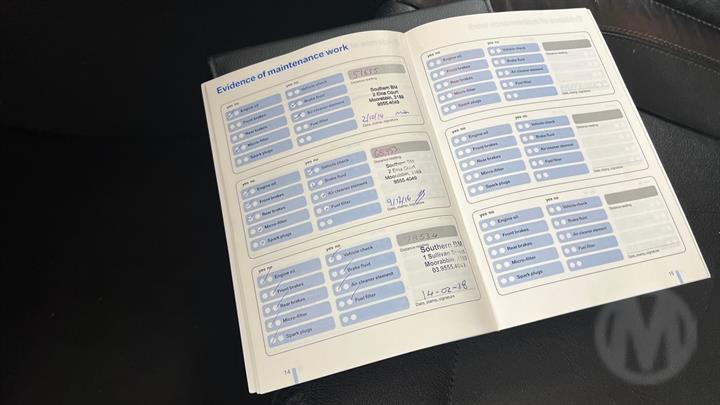 Evidence of maintenance work
yes no
yes no
Engine oil
Vehicle check
Front brakes
Brake fluid
Rear brakes
Air cleaner element
Micro-filter
Fuel filter
Spark plugs
Distance reading
Southern BM
2 Elna Court
Moorabbin, 3189
9555.4045
2/10/14
Date, stamp, signature
yes no
yes no
Engine oil
Vehicle check
Front brakes
Brake fluid
Rear brakes
Air cleaner element
Micro-filter
Fuel filter
Spark plugs
Distance reading
Southern BM
2 Elna Court
Moorabbin, 3189
9555.4045
9/12/16
Date, stamp, signature
yes no
yes no
Engine oil
Vehicle check
Front brakes
Brake fluid
Rear brakes
Air cleaner element
Micro-filter
Fuel filter
Spark plugs
79534
Distance reading
Southern BM
1 Sullivan
Moorabbin
03.9555.4045
14-02-18
Date, stamp, signature
14
yes no
yes no
Engine oil
Vehicle check
Front brakes
Brake fluid
Rear brakes
Air cleaner element
Micro-filter
Fuel filter
Spark plugs
Distance reading
Date, stamp, signature
yes no
yes no
Engine oil
Vehicle check
Front brakes
Brake fluid
Rear brakes
Air cleaner element
Micro-filter
Fuel filter
Spark plugs
Distance reading
Date, stamp, signature
yes no
yes no
Engine oil
Vehicle check
Front brakes
Brake fluid
Rear brakes
Air cleaner element
Micro-filter
Fuel filter
Spark plugs
Distance reading
Date, stamp, signature
15
M